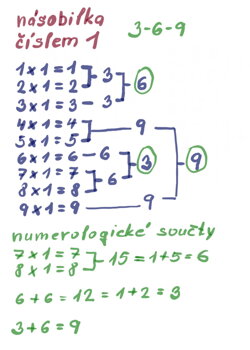 násobilka
číslem 1 3-6-9
1 x 1 = 1
3
2 x 1 = 2 6
3 x 1 = 3 - 3
4 x 1 = 4
9
5 x 1 = 5
6 x 1 = 6 - 6
3 9
7 x 1 = 7
6
8 x 1 = 8
9 x 1 = 9 9
numerologické součty
7 x 1 = 7
15 = 1+5 = 6
8 x 1 = 8
6 + 6 = 12 = 1+2 = 3
3 + 6 = 9